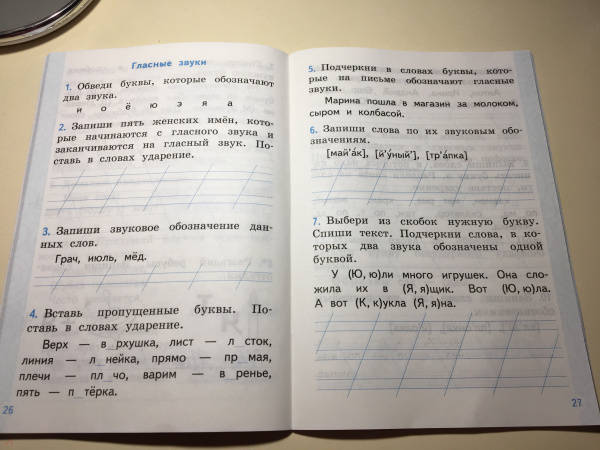 Гласные звуки
1. Обведи буквы, которые обозначают
два звука.
и о ё ю э я а
2. Запиши пять женских имён, кото-
рые начинаются с гласного звука и
заканчиваются на гласный звук. По-
ставь в словах ударение.
3. Запиши звуковое обозначение дан-
ных слов.
Грач, июль, мёд.
4. Вставь пропущенные буквы. По-
ставь в словах ударение.
Верх — в_рхушка, лист — л_сток,
линия — л_нейка, прямо — пр_мая,
плечи — пл_чо, варим — в_ренье,
пять — п_тёрка.
26
5. Подчеркни в словах буквы, кото-
рые на письме обозначают гласные
звуки.
Марина пошла в магазин за молоком,
сыром и колбасой.
6. Запиши слова по их звуковым обо-
значениям.
[май'а́к], [й'у́ный'], [тр'а́пка]
7. Выбери из скобок нужную букву.
Спиши текст. Подчеркни слова, в ко-
торых два звука обозначены одной
буквой.
У (Ю, ю)ли много игрушек. Она сло-
жила их в (Я, я)щик. Вот (Ю, ю)ла.
А вот (К, к)укла (Я, я)на.
27